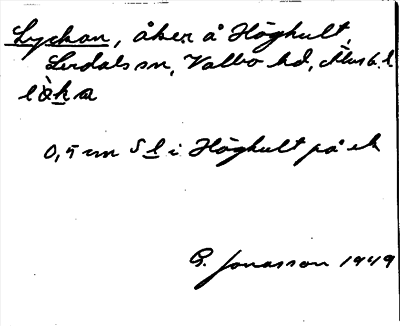 Lyckan, åker å Höghult,
Lerdals sn, Valbo hd, Älvsb. l
lỳka
0,5 cm S l i Höghult på ek
G. Jonasson 1949